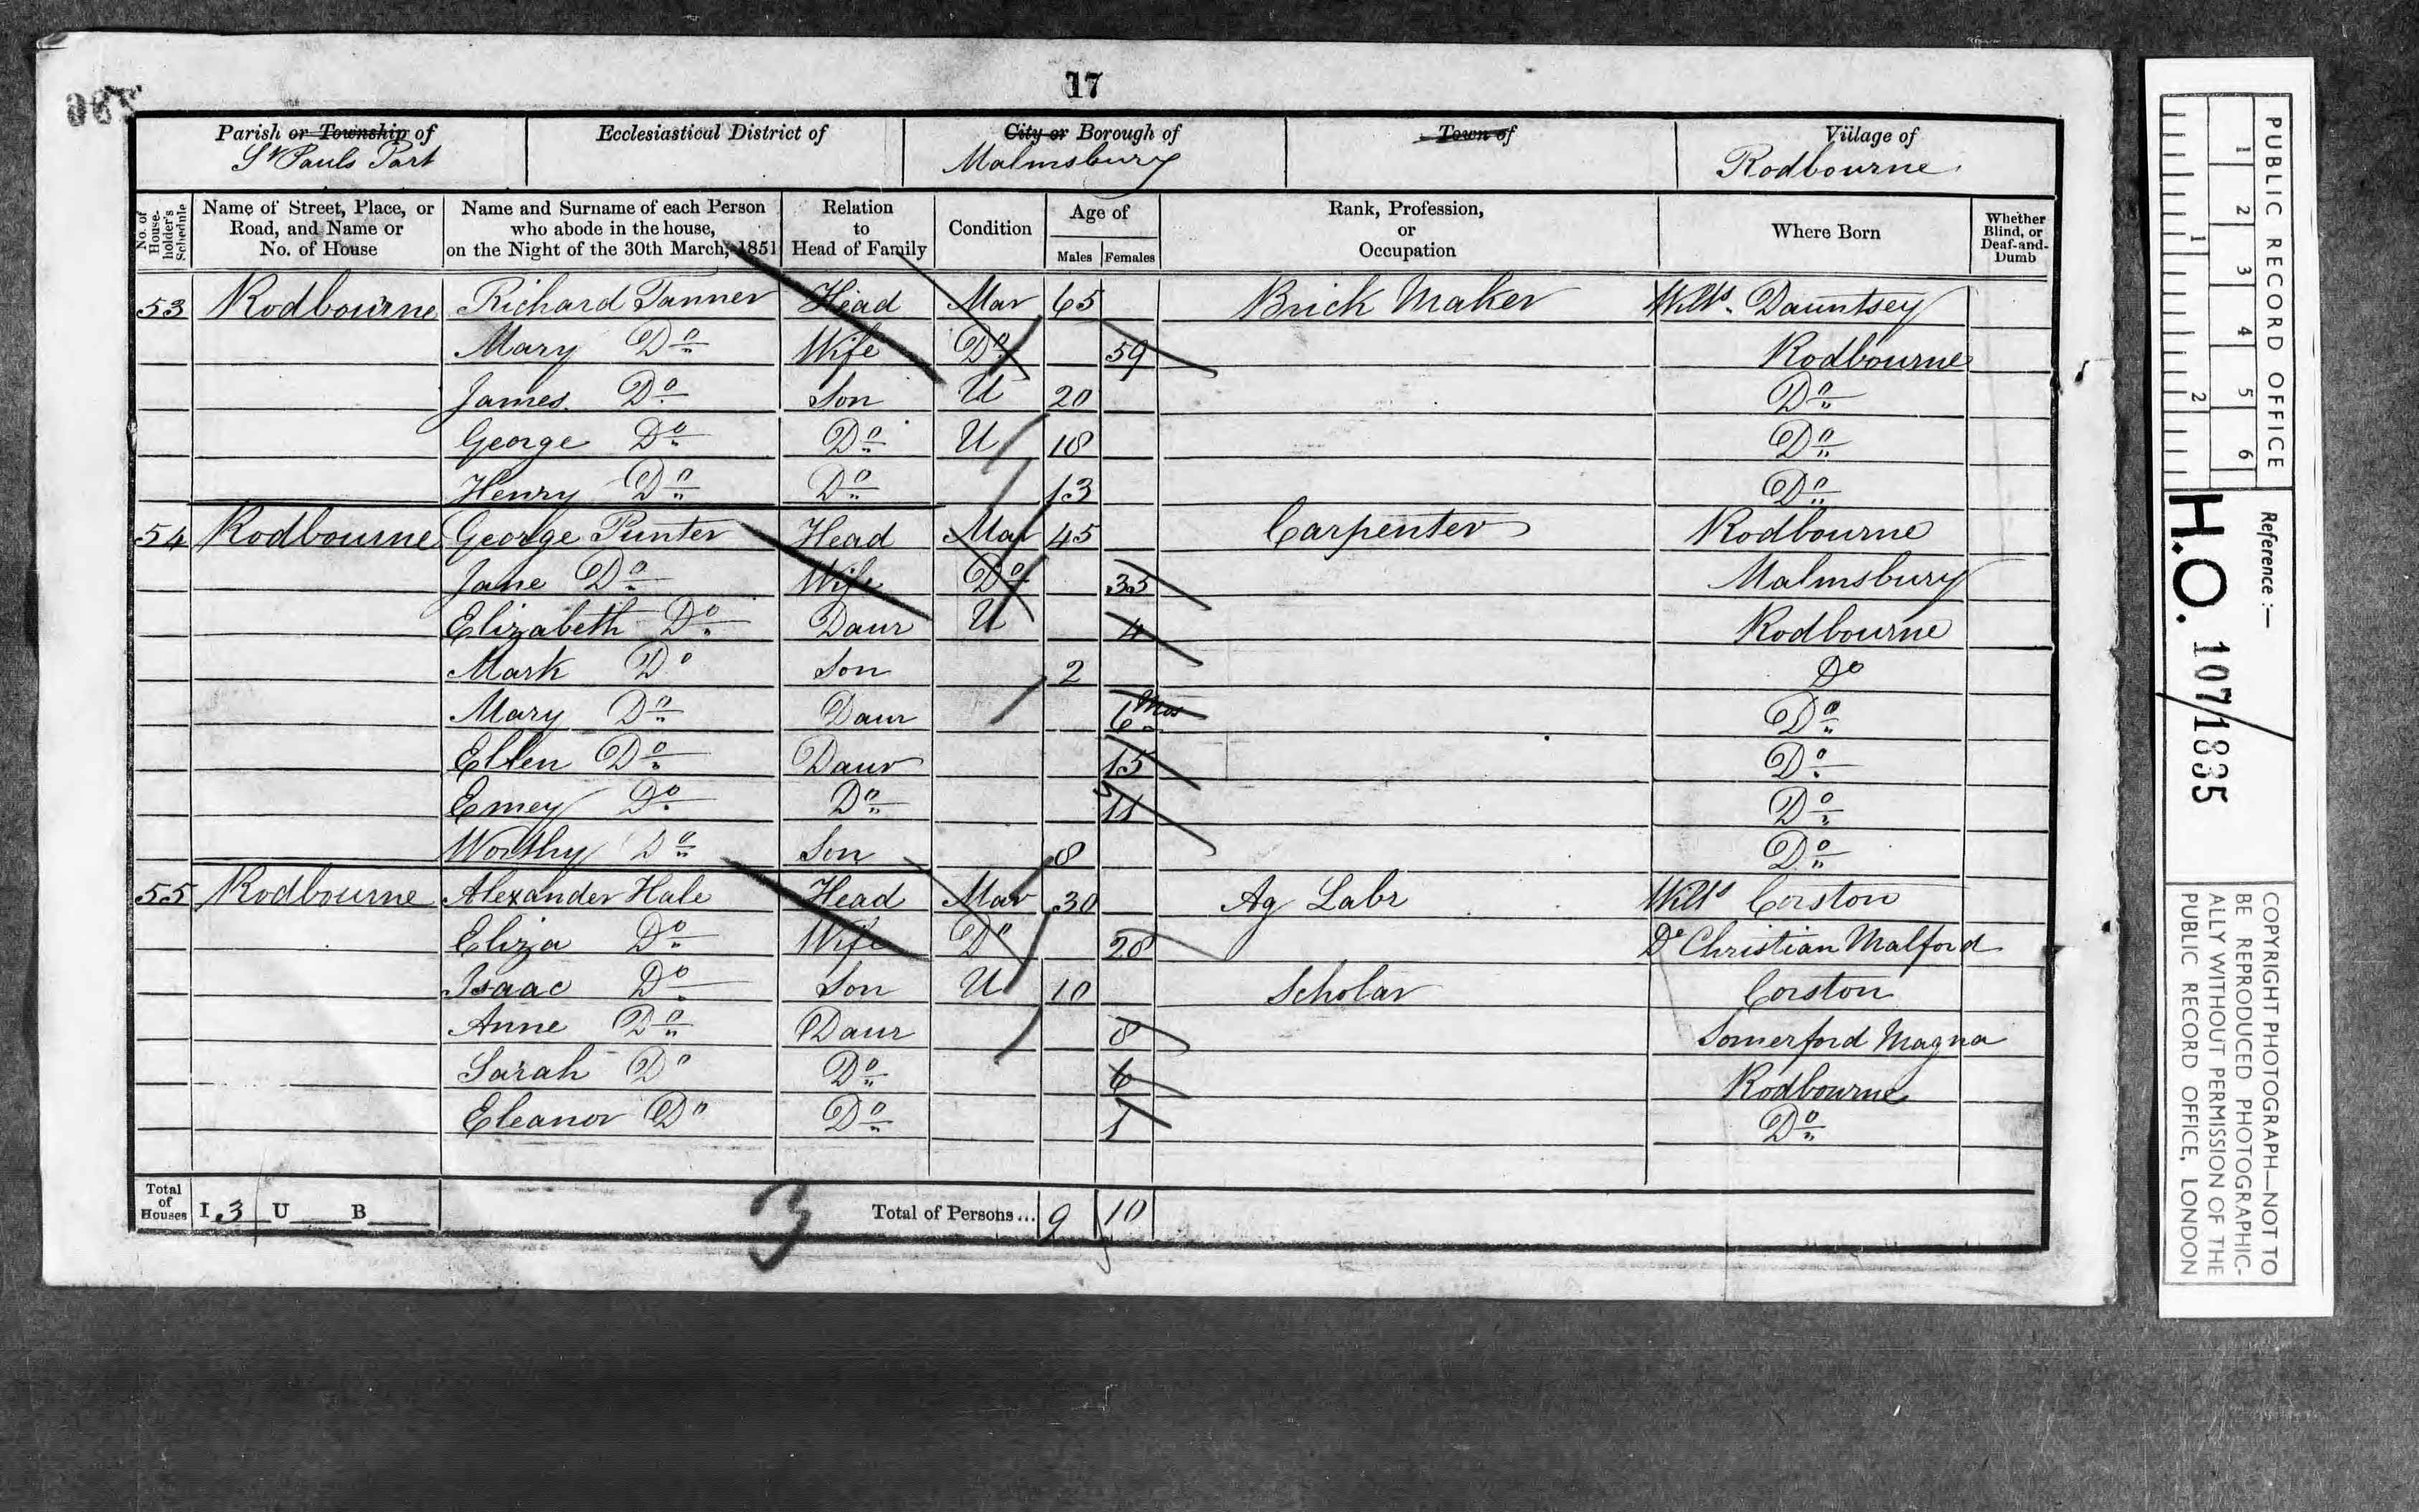 17
Parish or Township of
St Pauls Part
Ecclesiastical District of
City or Borough of
Malmsbury
Town of
Village of
Rodbourne
No. of House-holder's Schedule
Name of Street, Place, or Road, and Name or No. of House
Name and Surname of each Person who abode in the house, on the Night of the 30th March, 1851
Relation to Head of Family
Condition
Age of
Males Females
Rank, Profession, or Occupation
Where Born
Whether Blind, or Deaf-and-Dumb
53 Rodbourne Richard Tanner Head Mar 65 Brick Maker Wilts. Dauntsey
Mary Do Wife Do 59 Rodbourne
James Do Son U 20 Do
George Do Do U 18 Do
Henry Do Do 13 Do
54 Rodbourne George Punter Head Mar 45 Carpenter Rodbourne
Jane Do Wife Do 33 Malmsbury
Elizabeth Do Daur U 4 Rodbourne
Mark Do Son 2 Do
Mary Do Daur 6 Mos Do
Ellen Do Daur 15 Do
Emey Do Do 11 Do
Worthy Do Son 8 Do
55 Rodbourne Alexander Hale Head Mar 30 Ag Labr Wilts Corston
Eliza Do Wife Do 28 Do Christian Malford
Isaac Do Son U 10 Scholar Corston
Anne Do Daur 8 Somerford Magna
Sarah Do Do 6 Rodbourne
Eleanor Do Do 1 Do
Total of Houses I 3 U B
3
Total of Persons... 9 10
PUBLIC RECORD OFFICE
1 2 3 4 5 6
1 2
Reference :-
H.O. 107/1835
COPYRIGHT PHOTOGRAPH—NOT TO
BE REPRODUCED PHOTOGRAPHIC-
ALLY WITHOUT PERMISSION OF THE
PUBLIC RECORD OFFICE, LONDON